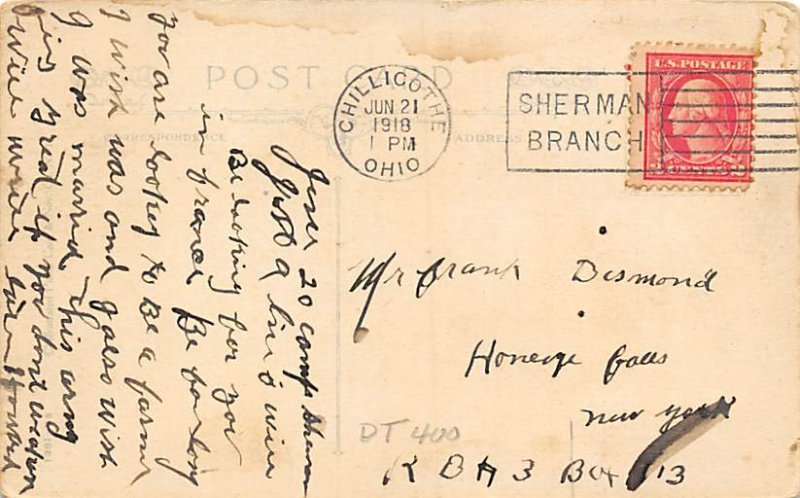 POST CARD
CORRESPONDENCE
ADDRESS
CHILLICOTHE
JUN 21
1918
1 PM
OHIO
SHERMAN
BRANCH
U.S. POSTAGE
2 CENTS 2
June 20 camp Sherman
Just a line
Be looking for you
in france Be for long
you are lookey to Be a farmr
I wish was and I aless wish
I was married this army
is
will write
Mr frank Desmond
Honeoye falls
new york
R D # 3 Box 113
DT 400